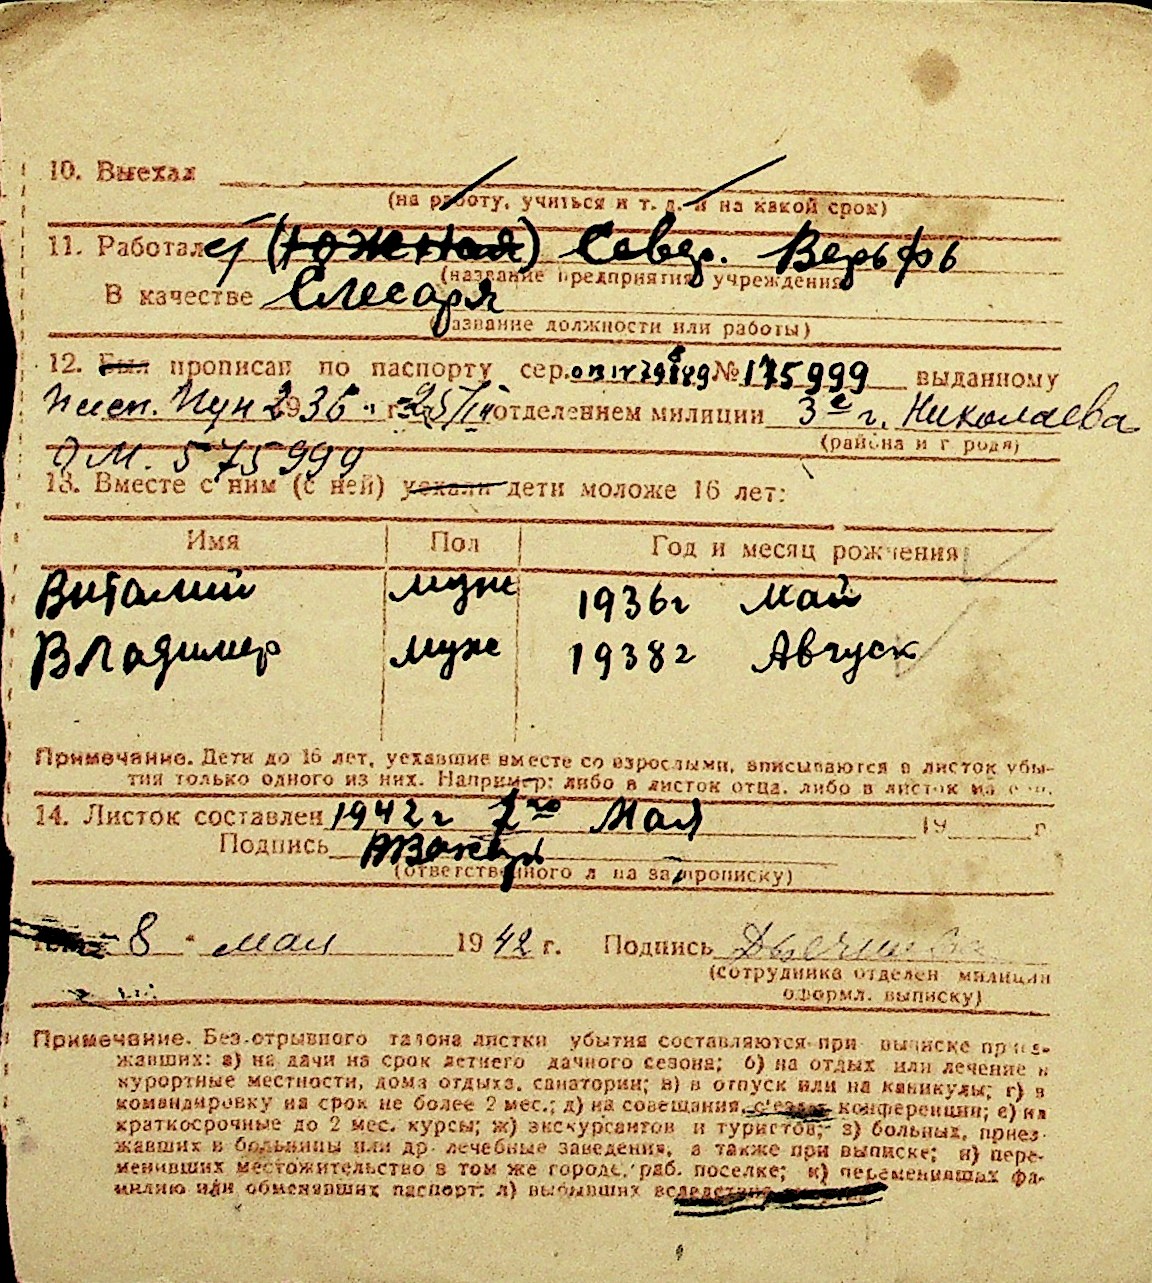 10. Выехал
(на работу, учиться и т. д. и на какой срок)
11. Работал (Южная) Север. Верьфь
(название предприятия учреждения)
В качестве Слесаря
(название должности или работы)
12. Был прописан по паспорту сер. № 175999 выданному
1936 г. 25/II отделением милиции 3е г. Николаева
(района и города)
575999
13. Вместе с ним (с ней) уехали дети моложе 16 лет:
Имя Пол Год и месяц рождения
Виталий муж 1936г Май
Владимир муж 1938г Авгуск
Примечание. Дети до 16 лет, уехавшие вместе со взрослыми, вписываются в листок убы-
тия только одного из них. Например: либо в листок отца, либо в листок
14. Листок составлен 1942г 7го Мая 19 г.
Подпись
(ответственного л на за прописку)
8 " мая 1942 г. Подпись
(сотрудника отделен милиции
оформл. выписку)
Примечание. Без отрывного талона листки убытия составляются при выписке приез-
жавших: а) на дачи на срок летнего дачного сезона; б) на отдых или лечение в
курортные местности, дома отдыха, санатории; в) в отпуск или на каникулы; г) в
командировку на срок не более 2 мес.; д) на совещания, с'езды конференции; е) на
краткосрочные до 2 мес. курсы; ж) экскурсантов и туристов; з) больных, приез-
жавших в больницы или др. лечебные заведения, а также при выписке; и) пере-
менивших местожительство в том же городе, раб. поселке; к) переменивших фа-
милию или обменявших паспорт: л) выбывших вследствие